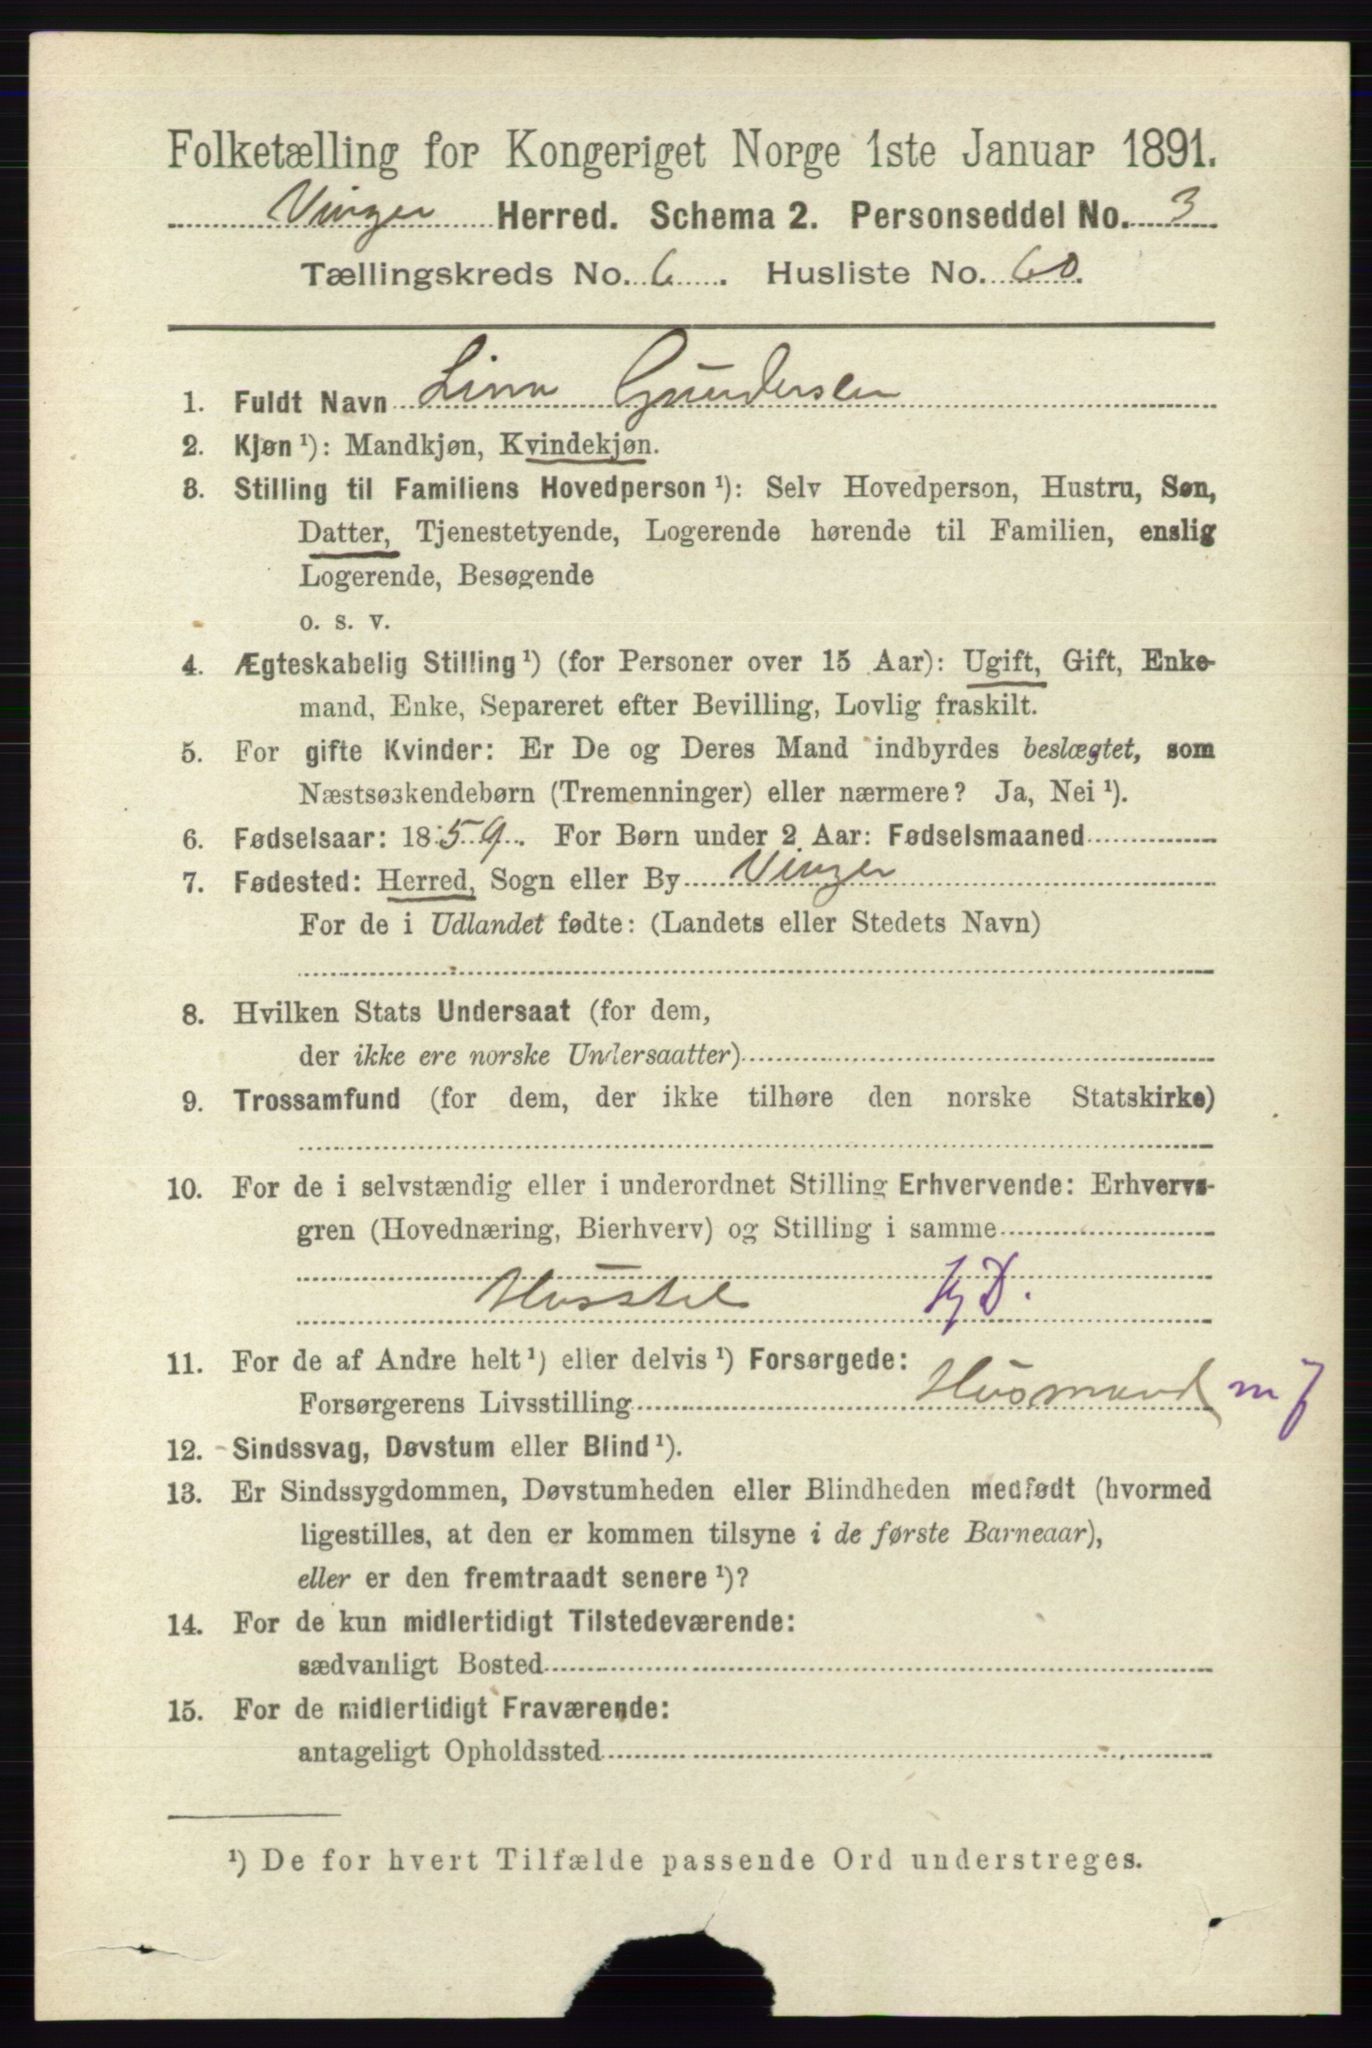 Folketælling for Kongeriget Norge 1ste Januar 1891.
Vinger Herred. Schema 2. Personseddel No. 3
Tællingskreds No. 6. Husliste No. 60.
1. Fuldt Navn Lina Gundersen
2. Kjøn ¹): Mandkjøn, Kvindekjøn.
3. Stilling til Familiens Hovedperson ¹): Selv Hovedperson, Hustru, Søn,
Datter, Tjenestetyende, Logerende hørende til Familien, enslig
Logerende, Besøgende
o. s. v.
4. Ægteskabelig Stilling ¹) (for Personer over 15 Aar): Ugift, Gift, Enke-
mand, Enke, Separeret efter Bevilling, Lovlig fraskilt.
5. For gifte Kvinder: Er De og Deres Mand indbyrdes beslægtet, som
Næstsøskendebørn (Tremenninger) eller nærmere? Ja, Nei ¹).
6. Fødselsaar: 1859. For Børn under 2 Aar: Fødselsmaaned
7. Fødested: Herred, Sogn eller By Vinger
For de i Udlandet fødte: (Landets eller Stedets Navn)
8. Hvilken Stats Undersaat (for dem,
der ikke ere norske Undersaatter)
9. Trossamfund (for dem, der ikke tilhøre den norske Statskirke)
10. For de i selvstændig eller i underordnet Stilling Erhvervende: Erhvervs-
gren (Hovednæring, Bierhverv) og Stilling i samme
Husstel
11. For de af Andre helt ¹) eller delvis ¹) Forsørgede:
Forsørgerens Livsstilling Husmand m f
12. Sindssvag, Døvstum eller Blind ¹).
13. Er Sindssygdommen, Døvstumheden eller Blindheden medfødt (hvormed
ligestilles, at den er kommen tilsyne i de første Barneaar),
eller er den fremtraadt senere ¹)?
14. For de kun midlertidigt Tilstedeværende:
sædvanligt Bosted
15. For de midlertidigt Fraværende:
antageligt Opholdssted
¹) De for hvert Tilfælde passende Ord understreges.